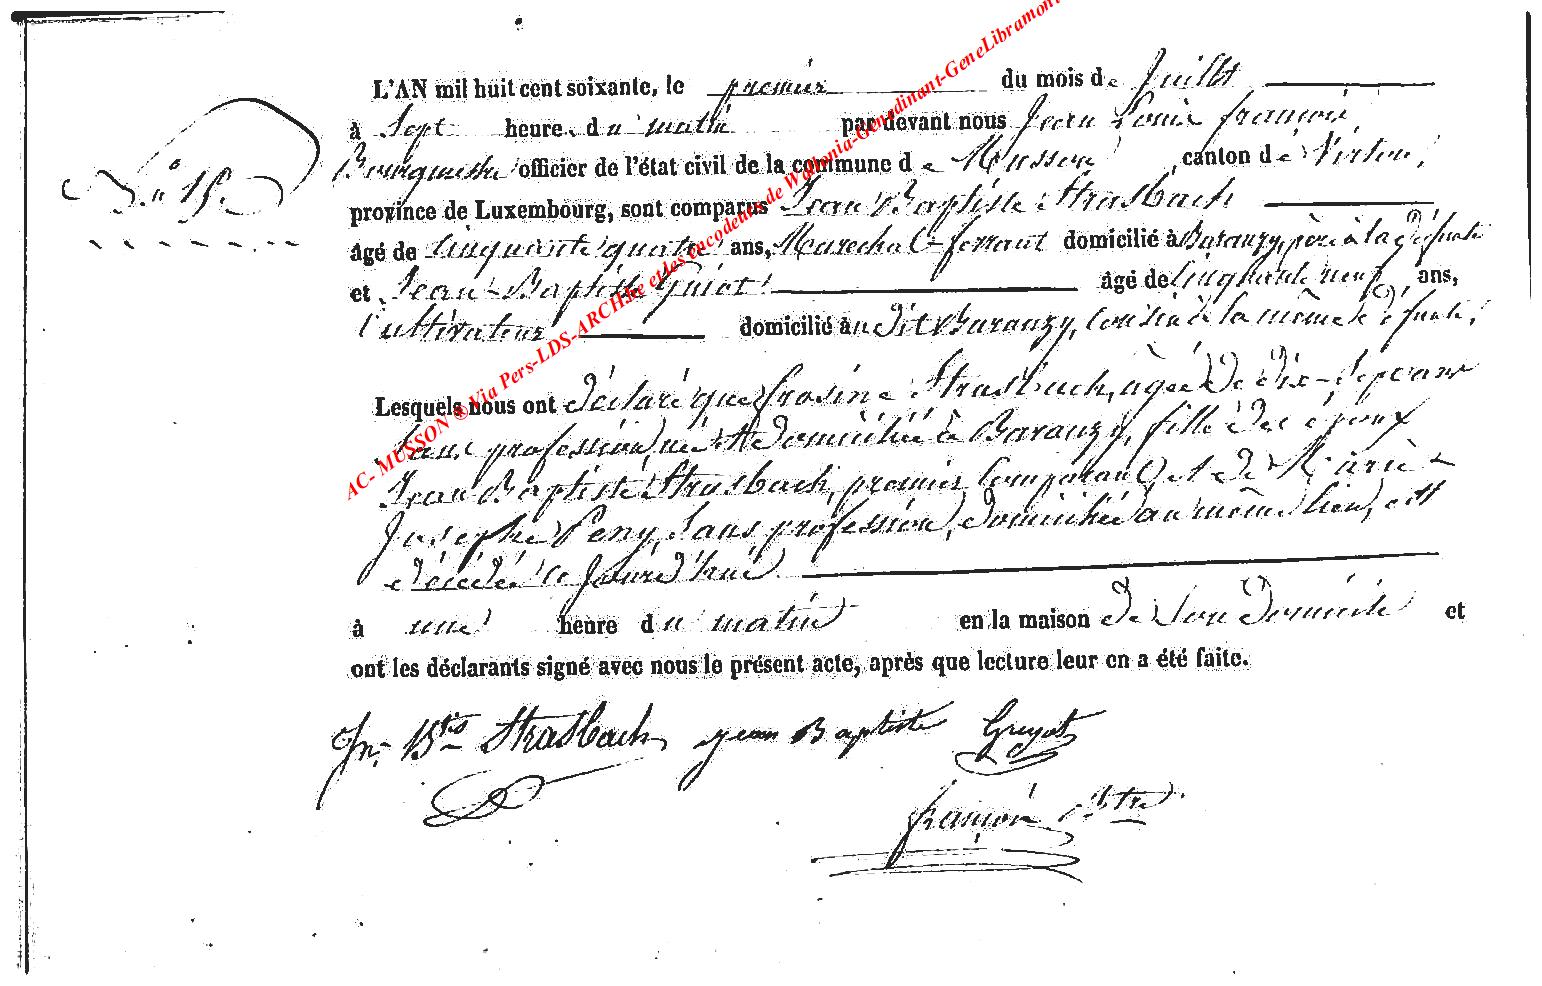 L'AN mil huit cent soixante, le premier du mois de Juillet
à Sept heure du matin par devant nous Jean Louis françois
N° 15. officier de l'état civil de la commune de Musson canton de Virton,
province de Luxembourg, sont comparus Jean Baptiste Strasbach
âgé de Cinquante quatre ans, Marechal-ferrant domicilié à Baranzy, père à la défunte
et Jean-Baptiste Guiot âgé de Cinquante neuf ans,
Cultivateur domicilié au dit Baranzy, Cousin à la même défunte,
Lesquels nous ont déclaré que frosine Strasbach, âgée de dix-sept ans
sans profession, née et domiciliée à Baranzy, fille des époux
Jean Baptiste Strasbach, premier Comparant et de Marie
Josephe Peny, sans profession, domiciliée au même lieu, est
décédée ce jourd'hui
à une heure du matin en la maison de son domicile et
ont les déclarants signé avec nous le présent acte, après que lecture leur en a été faite.
Jn. Bte Strasbach jean Baptiste Guyot
françois Btre
AC- MUSSON ® Via Pers-LDS-ARCH.be et les encodeurs de Wallonia-Genedinant-GeneLibramont